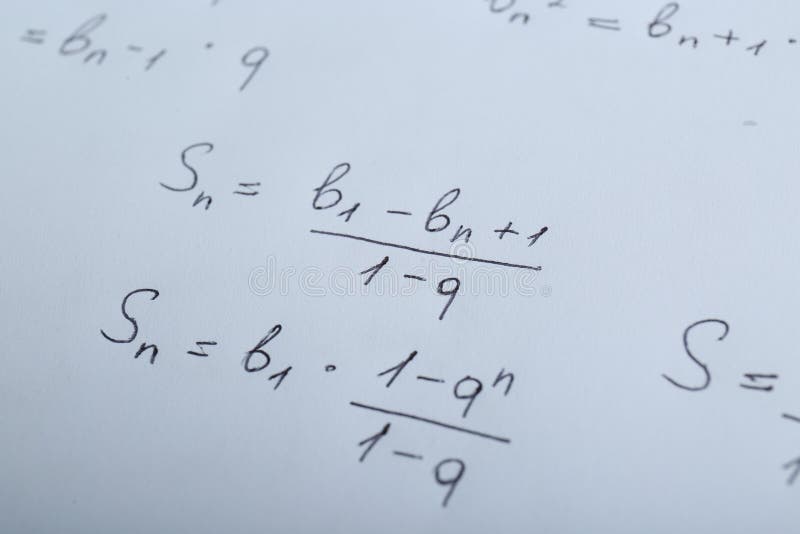 = b_{n-1} · q
b_n² = b_{n+1} ·
S_n = (b_1 - b_{n+1}) / (1 - q)
S_n = b_1 · (1 - q^n) / (1 - q)
S =